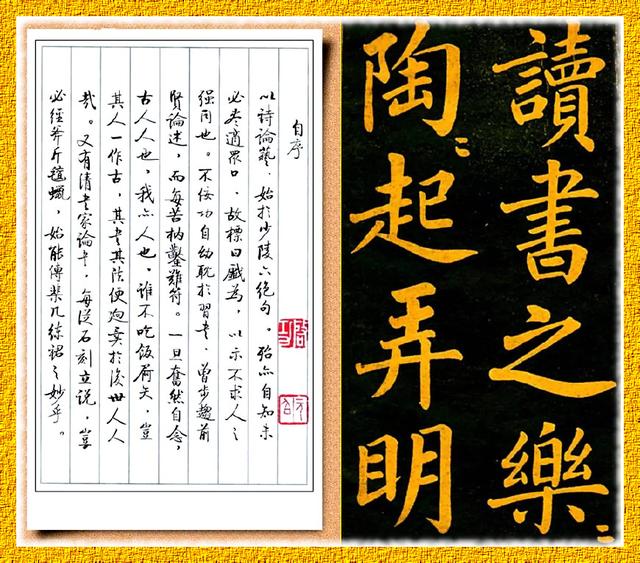 讀書之樂〻
陶〻起弄明
自序
以詩論藝．始於少陵六絕句，殆亦自知未
必尽適眾口，故標曰戲為，以示不求人之
强同也。不佞功自幼耽於習書，曾步趨前
賢論述，而每苦枘鑿難符。一旦奮然自念，
古人人也，我亦人也，誰不吃飯屙矢，豈
其人一作古，其書其法便迥異於後世人人
哉。又有清書家論書，每從石刻立說，豈
必經斧斤氈蠟，始能傳棐几練裙之妙乎。